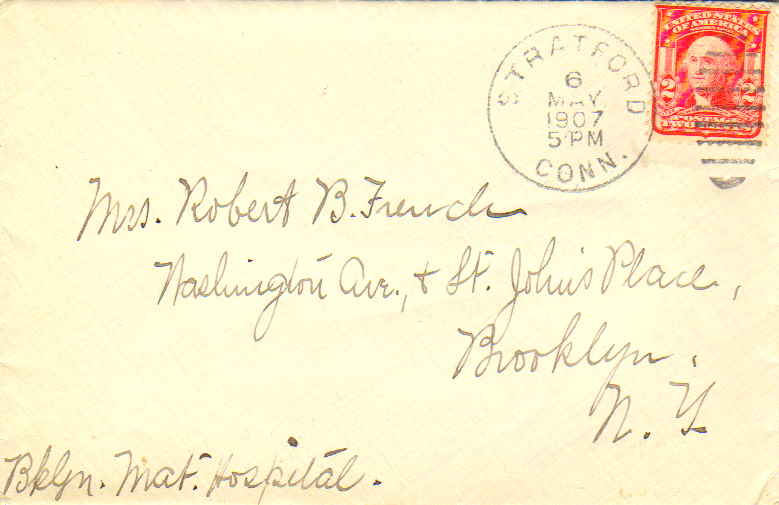 STRATFORD
6
MAY
1907
5 PM
CONN.
UNITED STATES
OF AMERICA
2 2
POSTAGE
TWO
Mrs. Robert B. French
Washington Ave., & St. John's Place,
Brooklyn.
N. Y.
Bklyn. Mat. Hospital.